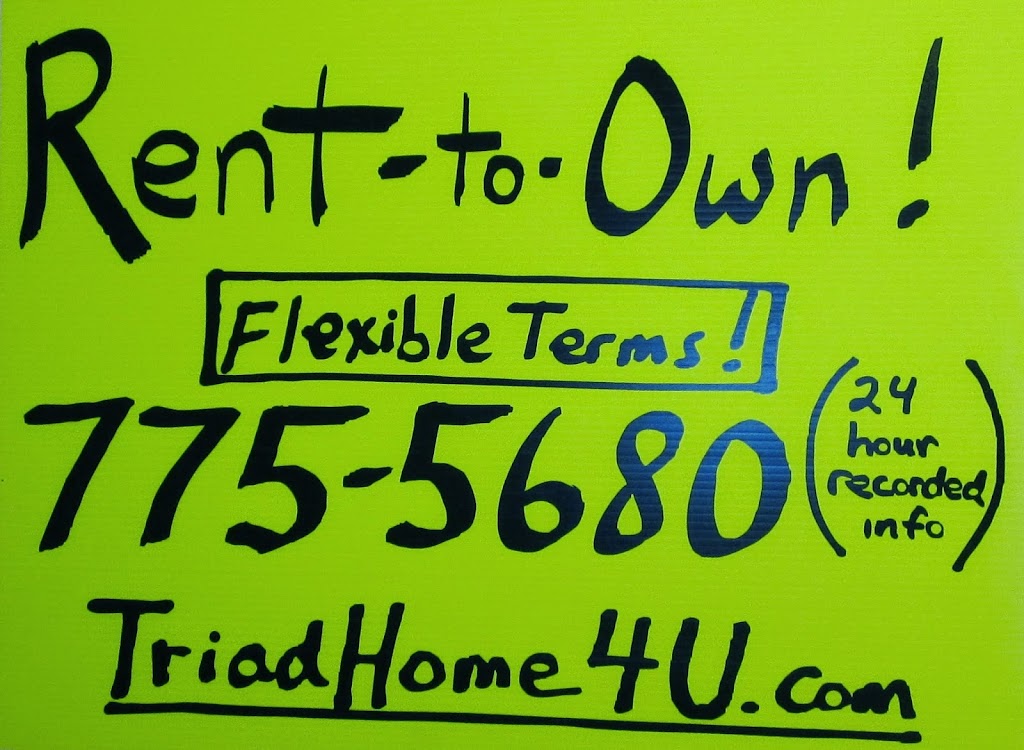 Rent-to-Own!
Flexible Terms!
775-5680
(24
hour
recorded
info)
TriadHome4U.com